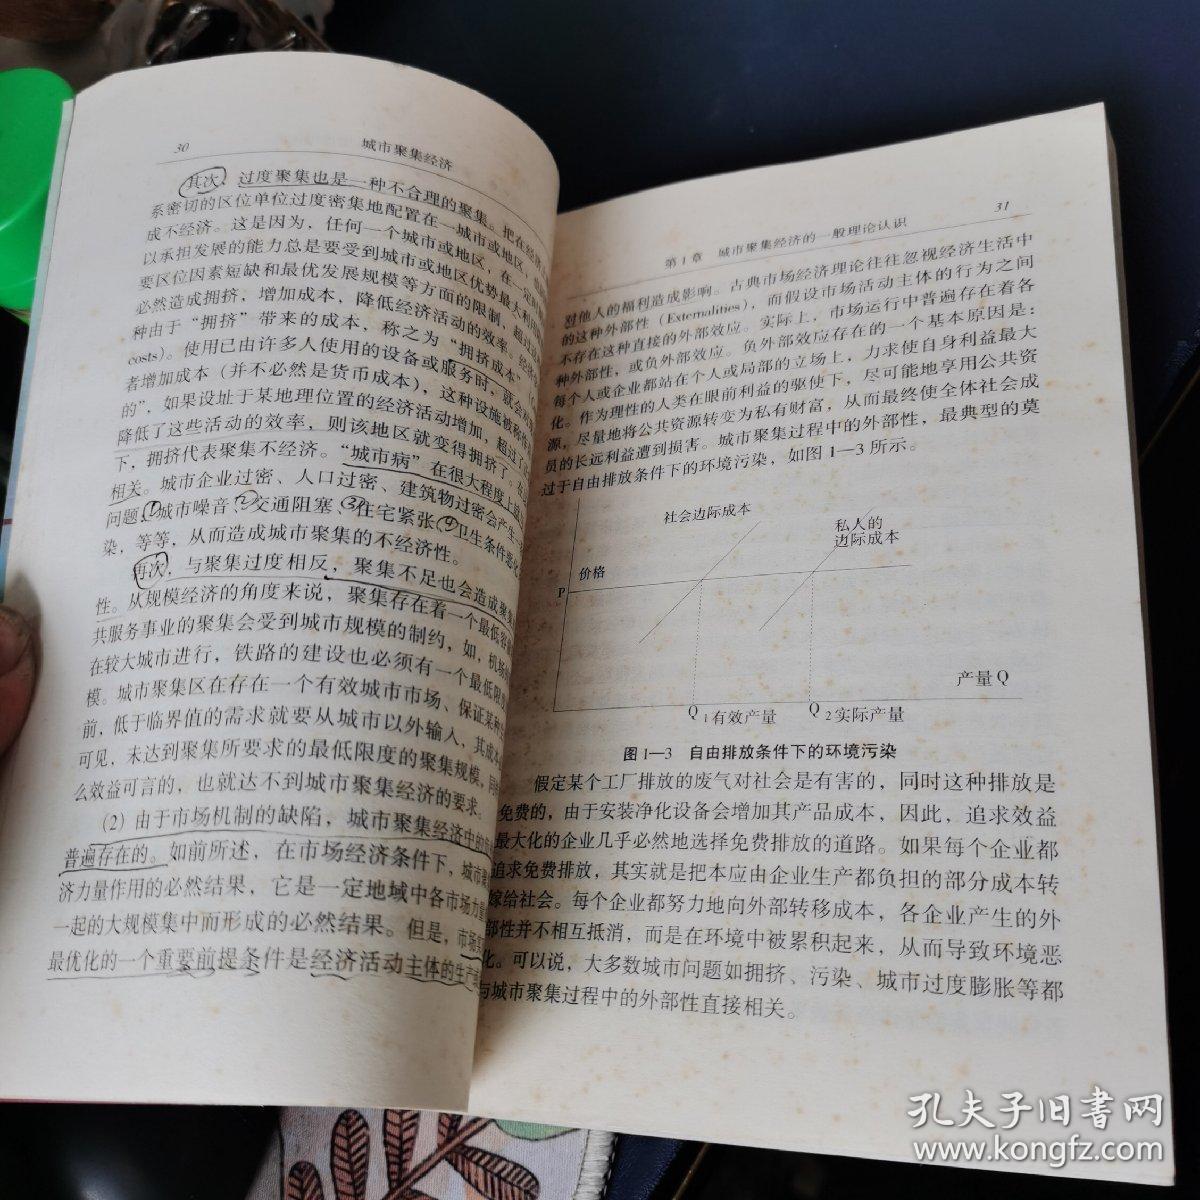 30
城市聚集经济
其次，过度聚集也是一种不合理的聚集。把在经济
系密切的区位单位过度密集地配置在一城市或地区，
成不经济。这是因为，任何一个城市或地区，在一定
以承担发展的能力总是要受到城市或地区优势最大利用
要区位因素短缺和最优发展规模等方面的限制，超过
必然造成拥挤，增加成本，降低经济活动的效率。经济
种由于“拥挤”带来的成本，称之为“拥挤成本”
costs）。使用已由许多人使用的设备或服务时，就会对
者增加成本（并不必然是货币成本），这种设施被称作
的”，如果设址于某地理位置的经济活动增加，超过了
降低了这些活动的效率，则该地区就变得拥挤了。在
下，拥挤代表聚集不经济。“城市病”在很大程度上
相关。城市企业过密、人口过密、建筑物过密会产生一
问题，①城市噪音、②交通阻塞、③住宅紧张、④卫生条件恶化
染，等等，从而造成城市聚集的不经济性。
再次，与聚集过度相反，聚集不足也会造成聚集
性。从规模经济的角度来说，聚集存在着一个最低容
共服务事业的聚集会受到城市规模的制约，如，机场
在较大城市进行，铁路的建设也必须有一个最低限度
模。城市聚集区在存在一个有效城市市场、保证某种
前，低于临界值的需求就要从城市以外输入，其成本
可见，未达到聚集所要求的最低限度的聚集规模，同样
么效益可言的，也就达不到城市聚集经济的要求。
(2) 由于市场机制的缺陷，城市聚集经济中的
普遍存在的。如前所述，在市场经济条件下，城市聚
济力量作用的必然结果，它是一定地域中各市场力量
一起的大规模集中而形成的必然结果。但是，市场实
最优化的一个重要前提条件是经济活动主体的生产
31
第1章 城市聚集经济的一般理论认识
对他人的福利造成影响。古典市场经济理论往往忽视经济生活中
的这种外部性（Externalities），而假设市场活动主体的行为之间
不存在这种直接的外部效应。实际上，市场运行中普遍存在着各
种外部性，或负外部效应。负外部效应存在的一个基本原因是：
每个人或企业都站在个人或局部的立场上，力求使自身利益最大
化。作为理性的人类在眼前利益的驱使下，尽可能地享用公共资
源，尽量地将公共资源转变为私有财富，从而最终使全体社会成
员的长远利益遭到损害。城市聚集过程中的外部性，最典型的莫
过于自由排放条件下的环境污染，如图1—3所示。
社会边际成本
私人的
边际成本
价格
P
产量Q
Q1有效产量
Q2实际产量
图1—3 自由排放条件下的环境污染
假定某个工厂排放的废气对社会是有害的，同时这种排放是
免费的，由于安装净化设备会增加其产品成本，因此，追求效益
最大化的企业几乎必然地选择免费排放的道路。如果每个企业都
追求免费排放，其实就是把本应由企业生产都负担的部分成本转
嫁给社会。每个企业都努力地向外部转移成本，各企业产生的外
部性并不相互抵消，而是在环境中被累积起来，从而导致环境恶
化。可以说，大多数城市问题如拥挤、污染、城市过度膨胀等都
与城市聚集过程中的外部性直接相关。
孔夫子旧书网
www.kongfz.com